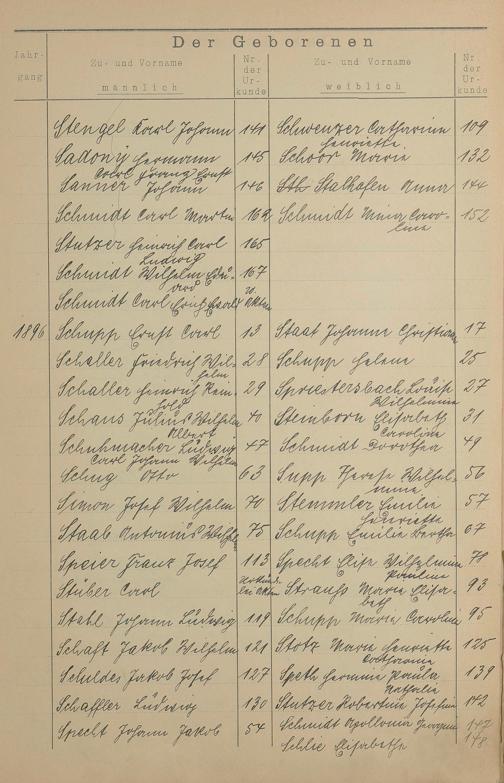 Der Geborenen
Jahr-
gang
Zu- und Vorname
männlich
Nr.
der
Ur-
kunde
Zu- und Vorname
weiblich
Nr
der
Ur-
kunde
Stengel Karl Johann 141 Schwenzer Catharina Henriette 109
Sadony Hermann Carl Franz Ernst 145 Schoor Maria 132
Sanner Johann 146 Stalhofen Anna 144
Schmidt Carl Martin 162 Schmidt Maria Caro-
line 152
Stutzer Heinrich Carl Ludwig 165
Schmidt Wilhelm Edu-
ard 167
Schmidt Carl Erich Ewald
1896 Schupp Ernst Carl 13 Staat Johanna Christiane 17
Schaller Friedrich Wil-
helm 28 Schupp Helene 25
Schaller Heinrich Rein-
hold 29 Spriestersbach Louise Wilhelmine 27
Schaus Julius Wilhelm Albert 40 Steinborn Elisabeth Caroline 31
Schuhmacher Ludwig Carl Johann Wilhelm 47 Schmidt Dorothea 49
Schug Otto 63 Supp Therese Wilhel-
mine 56
Simon Josef Wilhelm 70 Stemmler Emilie Henriette 57
Staab Antonius Wilhelm 75 Schupp Emilie Bertha 67
Speier Franz Josef 113 Specht Elise Wilhelmine Pauline 78
Stüber Carl Strauß Maria Elisa-
beth 93
Stahl Johann Ludwig 119 Schupp Maria Carolina 95
Schaft Jakob Wilhelm 121 Stotz Maria Henriette Catharina 125
Schuldes Jakob Josef 127 Speth Hermine Paula Nathalie 139
Schaffler Ludwig 130 Stutzer Robertine Josefine 142
Specht Johann Jakob 54 Schmidt Apollonia 147
Schlie Elisabetha 148